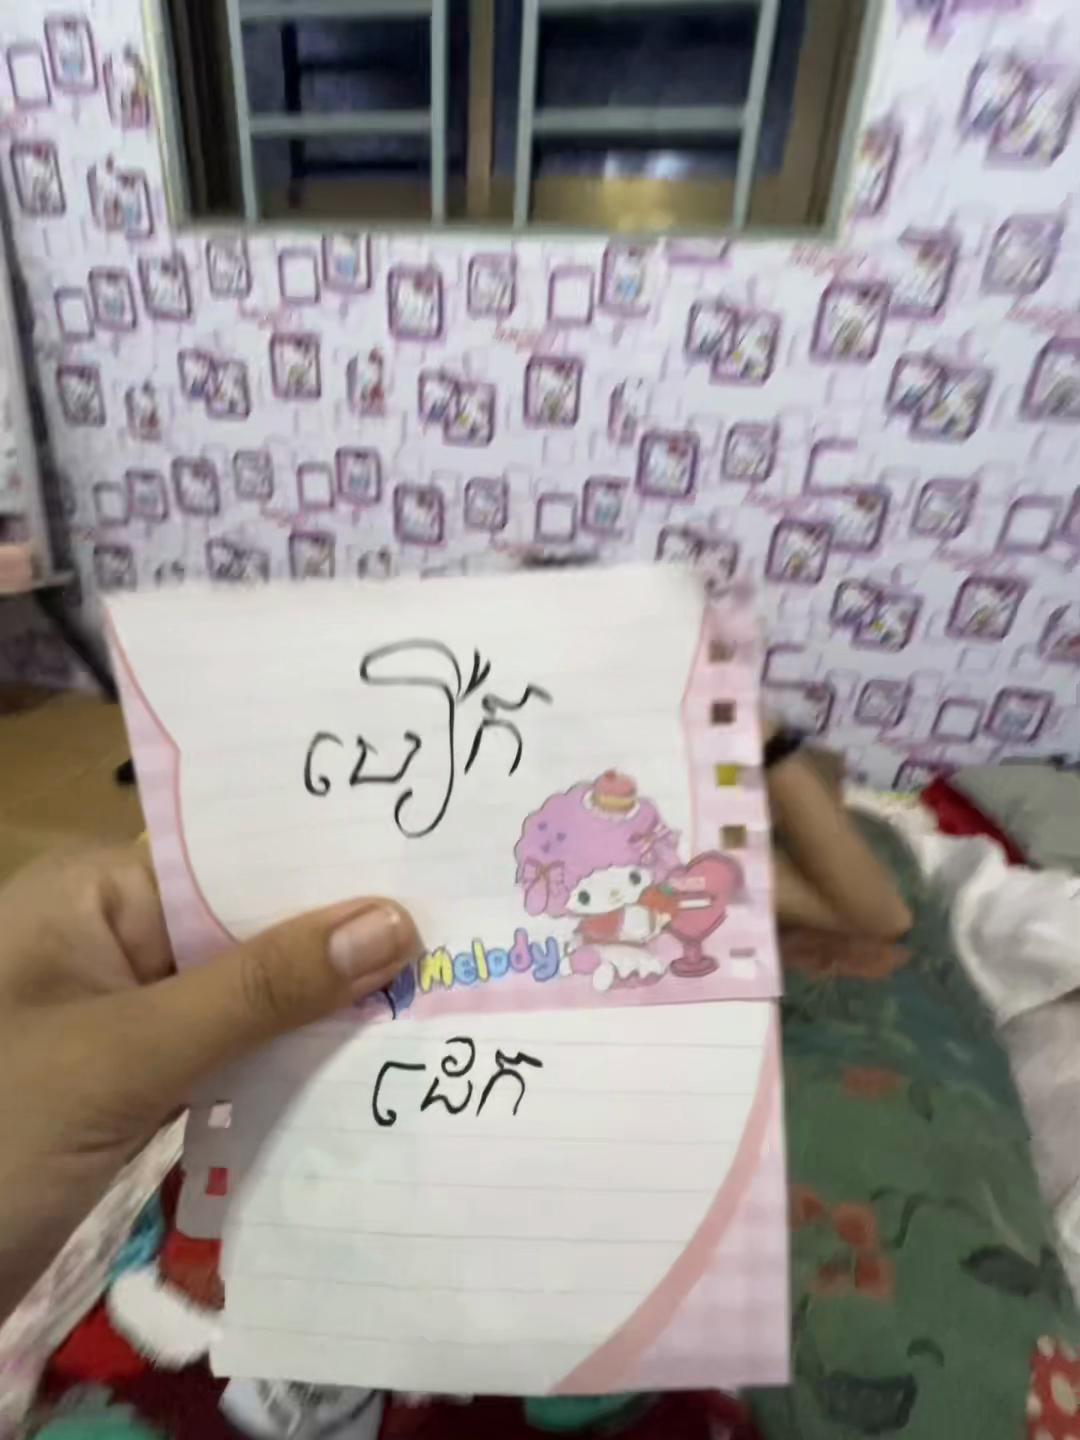 បឿក
Melody
ដេក